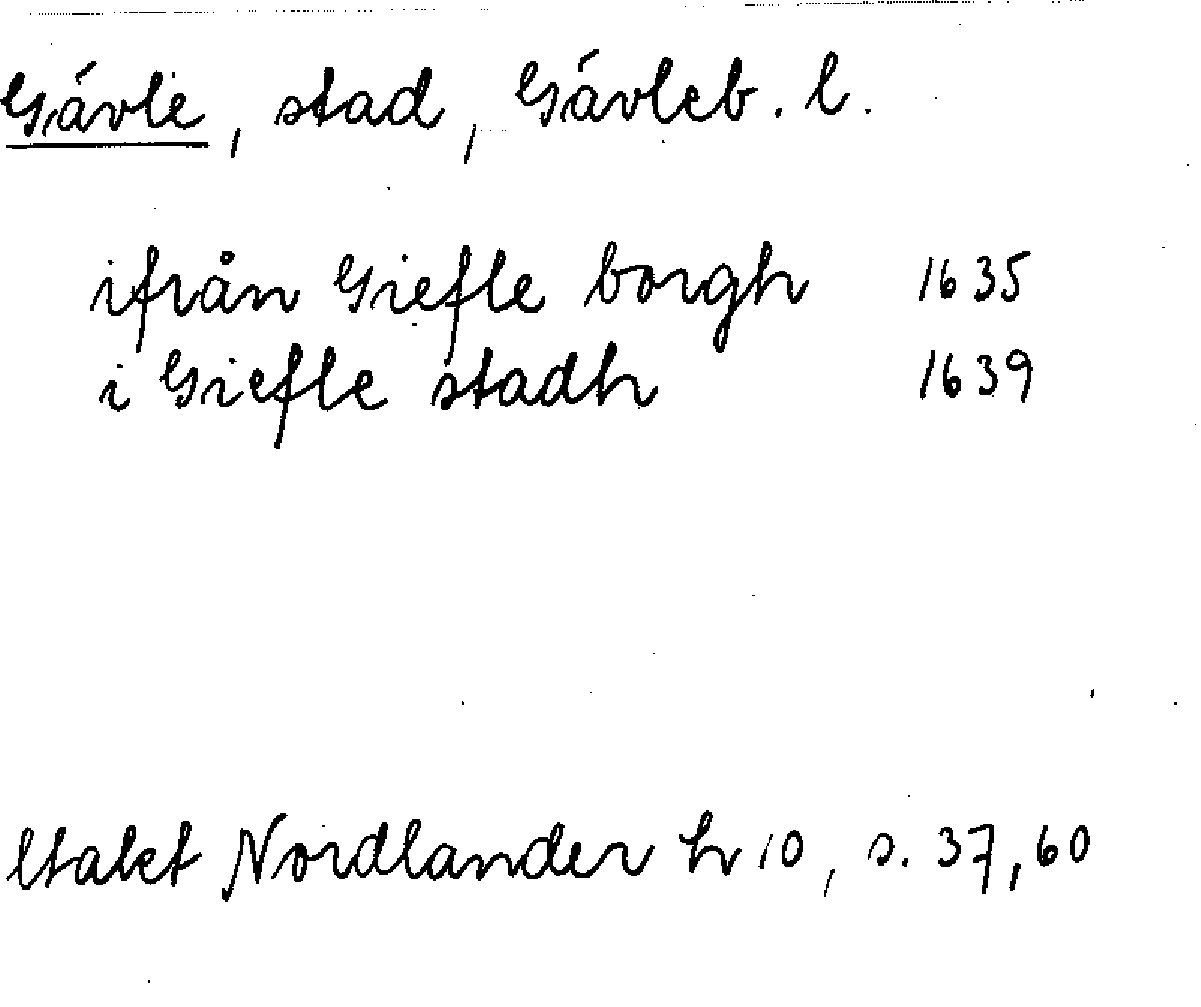 Gävle, stad, Gävleb. l.
ifrån Giefle borgh 1635
i Giefle stadh 1639
Nordlander h 10, s. 37, 60